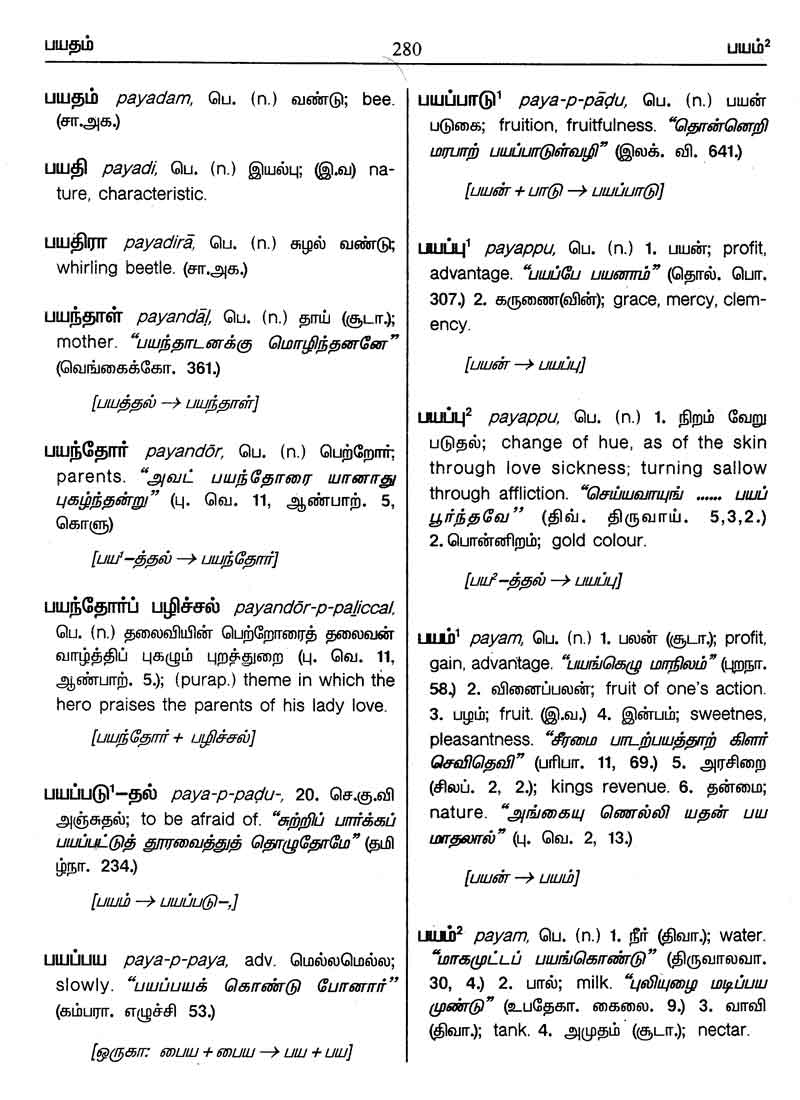 பயதம்
280
பயம்²
பயதம் payadam, பெ. (n.) வண்டு; bee.
(சா.அக.)
பயதி payadi, பெ. (n.) இயல்பு; (இ.வ) na-
ture, characteristic.
பயதிரா payadirā, பெ. (n.) சுழல் வண்டு;
whirling beetle. (சா.அக.)
பயந்தாள் payandāḷ, பெ. (n.) தாய் (சூடா.);
mother. “பயந்தாடனக்கு மொழிந்தனனே”
(வெங்கைக்கோ. 361.)
[பயத்தல் → பயந்தாள்]
பயந்தோர் payandōr, பெ. (n.) பெற்றோர்;
parents. “அவட் பயந்தோரை யானாது
புகழ்ந்தன்று” (பு. வெ. 11, ஆண்பாற். 5,
கொளு)
[பய¹–த்தல் → பயந்தோர்]
பயந்தோர்ப் பழிச்சல் payandōr-p-paḷiccal,
பெ. (n.) தலைவியின் பெற்றோரைத் தலைவன்
வாழ்த்திப் புகழும் புறத்துறை (பு. வெ. 11,
ஆண்பாற். 5.); (purap.) theme in which the
hero praises the parents of his lady love.
[பயந்தோர் + பழிச்சல்]
பயப்படு¹–தல் paya-p-paḍu-, 20. செ.கு.வி
அஞ்சுதல்; to be afraid of. “சுற்றிப் பார்க்கப்
பயப்பட்டுத் தூரவைத்துத் தொழுதோமே” (தமி
ழ்நா. 234.)
[பயம் → பயப்படு–,]
பயப்பய paya-p-paya, adv. மெல்லமெல்ல;
slowly. “பயப்பயக் கொண்டு போனார்”
(கம்பரா. எழுச்சி 53.)
[ஒருகா: பைய + பைய → பய + பய]
பயப்பாடு¹ paya-p-pāḍu, பெ. (n.) பயன்
படுகை; fruition, fruitfulness. “தொன்னெறி
மரபாற் பயப்பாடுள்வழி” (இலக். வி. 641.)
[பயன் + பாடு → பயப்பாடு]
பயப்பு¹ payappu, பெ. (n.) 1. பயன்; profit,
advantage. “பயப்பே பயனாம்” (தொல். பொ.
307.) 2. கருணை(வின்); grace, mercy, clem-
ency.
[பயன் → பயப்பு]
பயப்பு² payappu, பெ. (n.) 1. நிறம் வேறு
படுதல்; change of hue, as of the skin
through love sickness; turning sallow
through affliction. “செய்யவாயுங் ...... பயப்
பூர்ந்தவே” (திவ். திருவாய். 5,3,2.)
2. பொன்னிறம்; gold colour.
[பய²–த்தல் → பயப்பு]
பயம்¹ payam, பெ. (n.) 1. பலன் (சூடா.); profit,
gain, advantage. “பயங்கெழு மாநிலம்” (புறநா.
58.) 2. வினைப்பலன்; fruit of one's action.
3. பழம்; fruit. (இ.வ.) 4. இன்பம்; sweetnes,
pleasantness. “சீரமை பாடற்பயத்தாற் கிளர்
செவிதெவி” (பரிபா. 11, 69.) 5. அரசிறை
(சிலப். 2, 2.); kings revenue. 6. தன்மை;
nature. “அங்கையு ணெல்லி யதன் பய
மாதலால்” (பு. வெ. 2, 13.)
[பயன் → பயம்]
பயம்² payam, பெ. (n.) 1. நீர் (திவா.); water.
“மாகமுட்டப் பயங்கொண்டு” (திருவாலவா.
30, 4.) 2. பால்; milk. “புலியுழை மடிப்பய
முண்டு” (உபதேகா. கைலை. 9.) 3. வாவி
(திவா.); tank. 4. அமுதம் (சூடா.); nectar.